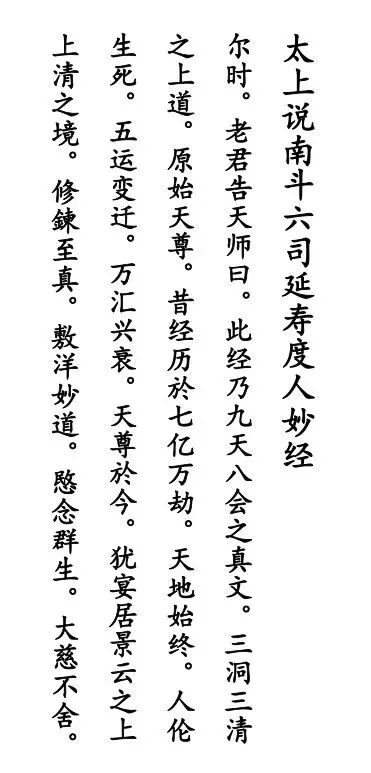 太上说南斗六司延寿度人妙经
尔时。老君告天师曰。此经乃九天八会之真文。三洞三清
之上道。原始天尊。昔经历於七亿万劫。天地始终。人伦
生死。五运变迁。万汇兴衰。天尊於今。犹宴居景云之上
上清之境。修鍊至真。敷洋妙道。愍念群生。大慈不舍。